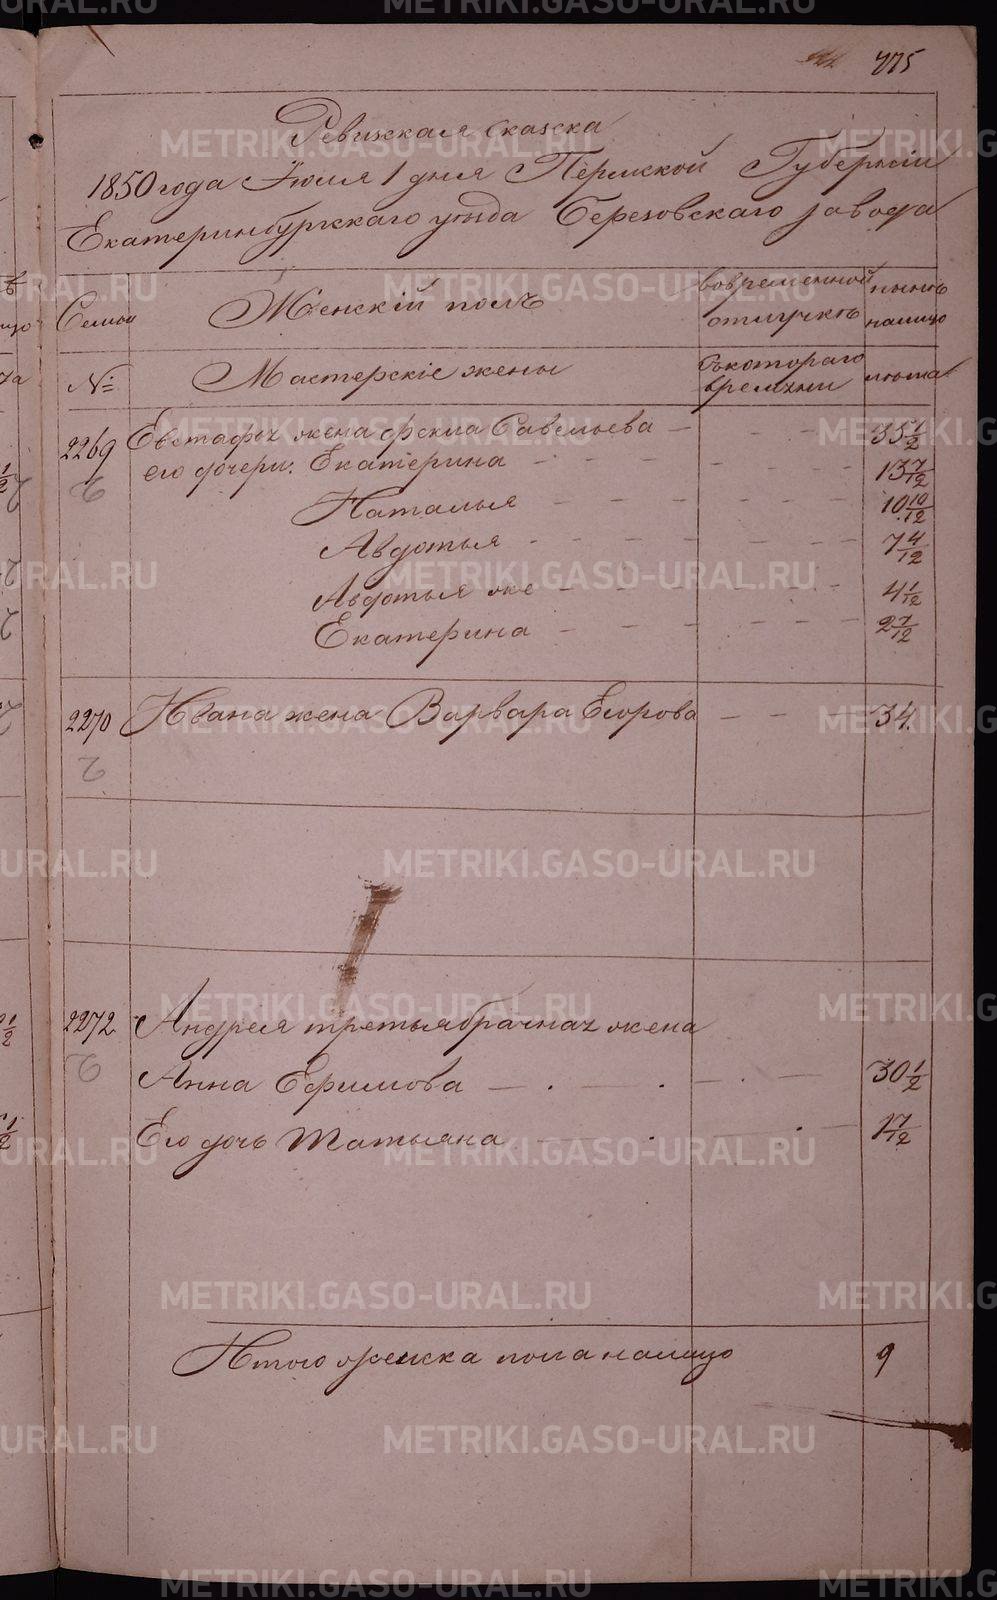 775
Ревизская сказка
1850 года Июля 1 дня Пермской Губернии
Екатеринбургскаго уезда Березовскаго завода
Семьи
Женскій полъ
вовременной отлучкѣ
нынѣ налицо
№
Мастерскіе жены
съкотораго времени
лѣта
2269 Евстафья жена Фекла Савельева 35 1/2
2 его дочери: Екатерина 13 7/12
Наталья 10 10/12
Авдотья 7 4/12
Авдотья же 4 1/12
Екатерина 2 7/12
2270 Ивана жена Варвара Егорова 34.
2
2272 Андрея третьябрачная жена
2 Анна Ефимова 30 1/2
Его дочь Татьяна 1 7/12
Итого женска пола налицо 9
METRIKI.GASO-URAL.RU